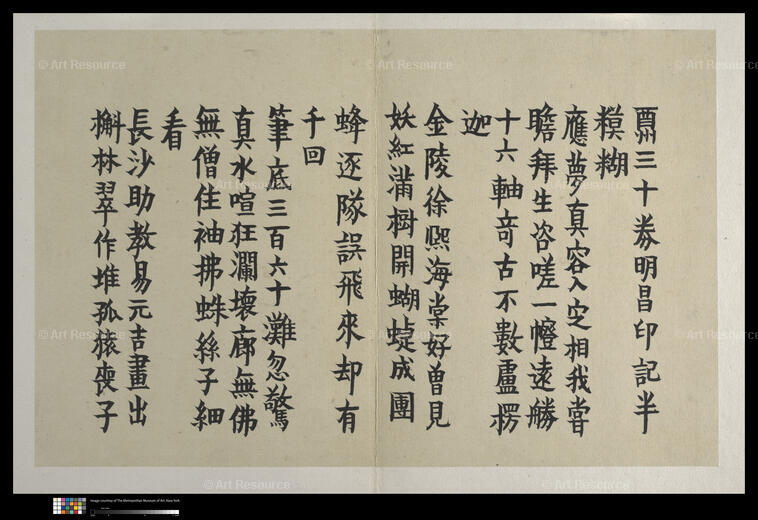 票三十券明昌印記半
糢糊
應夢真容入定相我嘗
瞻拜生咨嗟一幢遠勝
十六軸竒古不數盧楞
迦
金陵徐熙海棠好曽見
妖紅滿樹開蝴蜨成團
蜂逐隊誤飛來却有
千回
筆底三百六十灘忽驚
真水喧狂瀾壞廊無佛
無僧住袖拂蛛絲子細
看
長沙助教易元吉畫出
槲林翠作堆孤猿喪子
© Art Resource
© Art Resource
© Art Resource
© Art Resource
© Art Resource
© Art Resource
© Art Resource
© Art Resource
© Art Resource
Image courtesy of The Metropolitan Museum of Art, New York